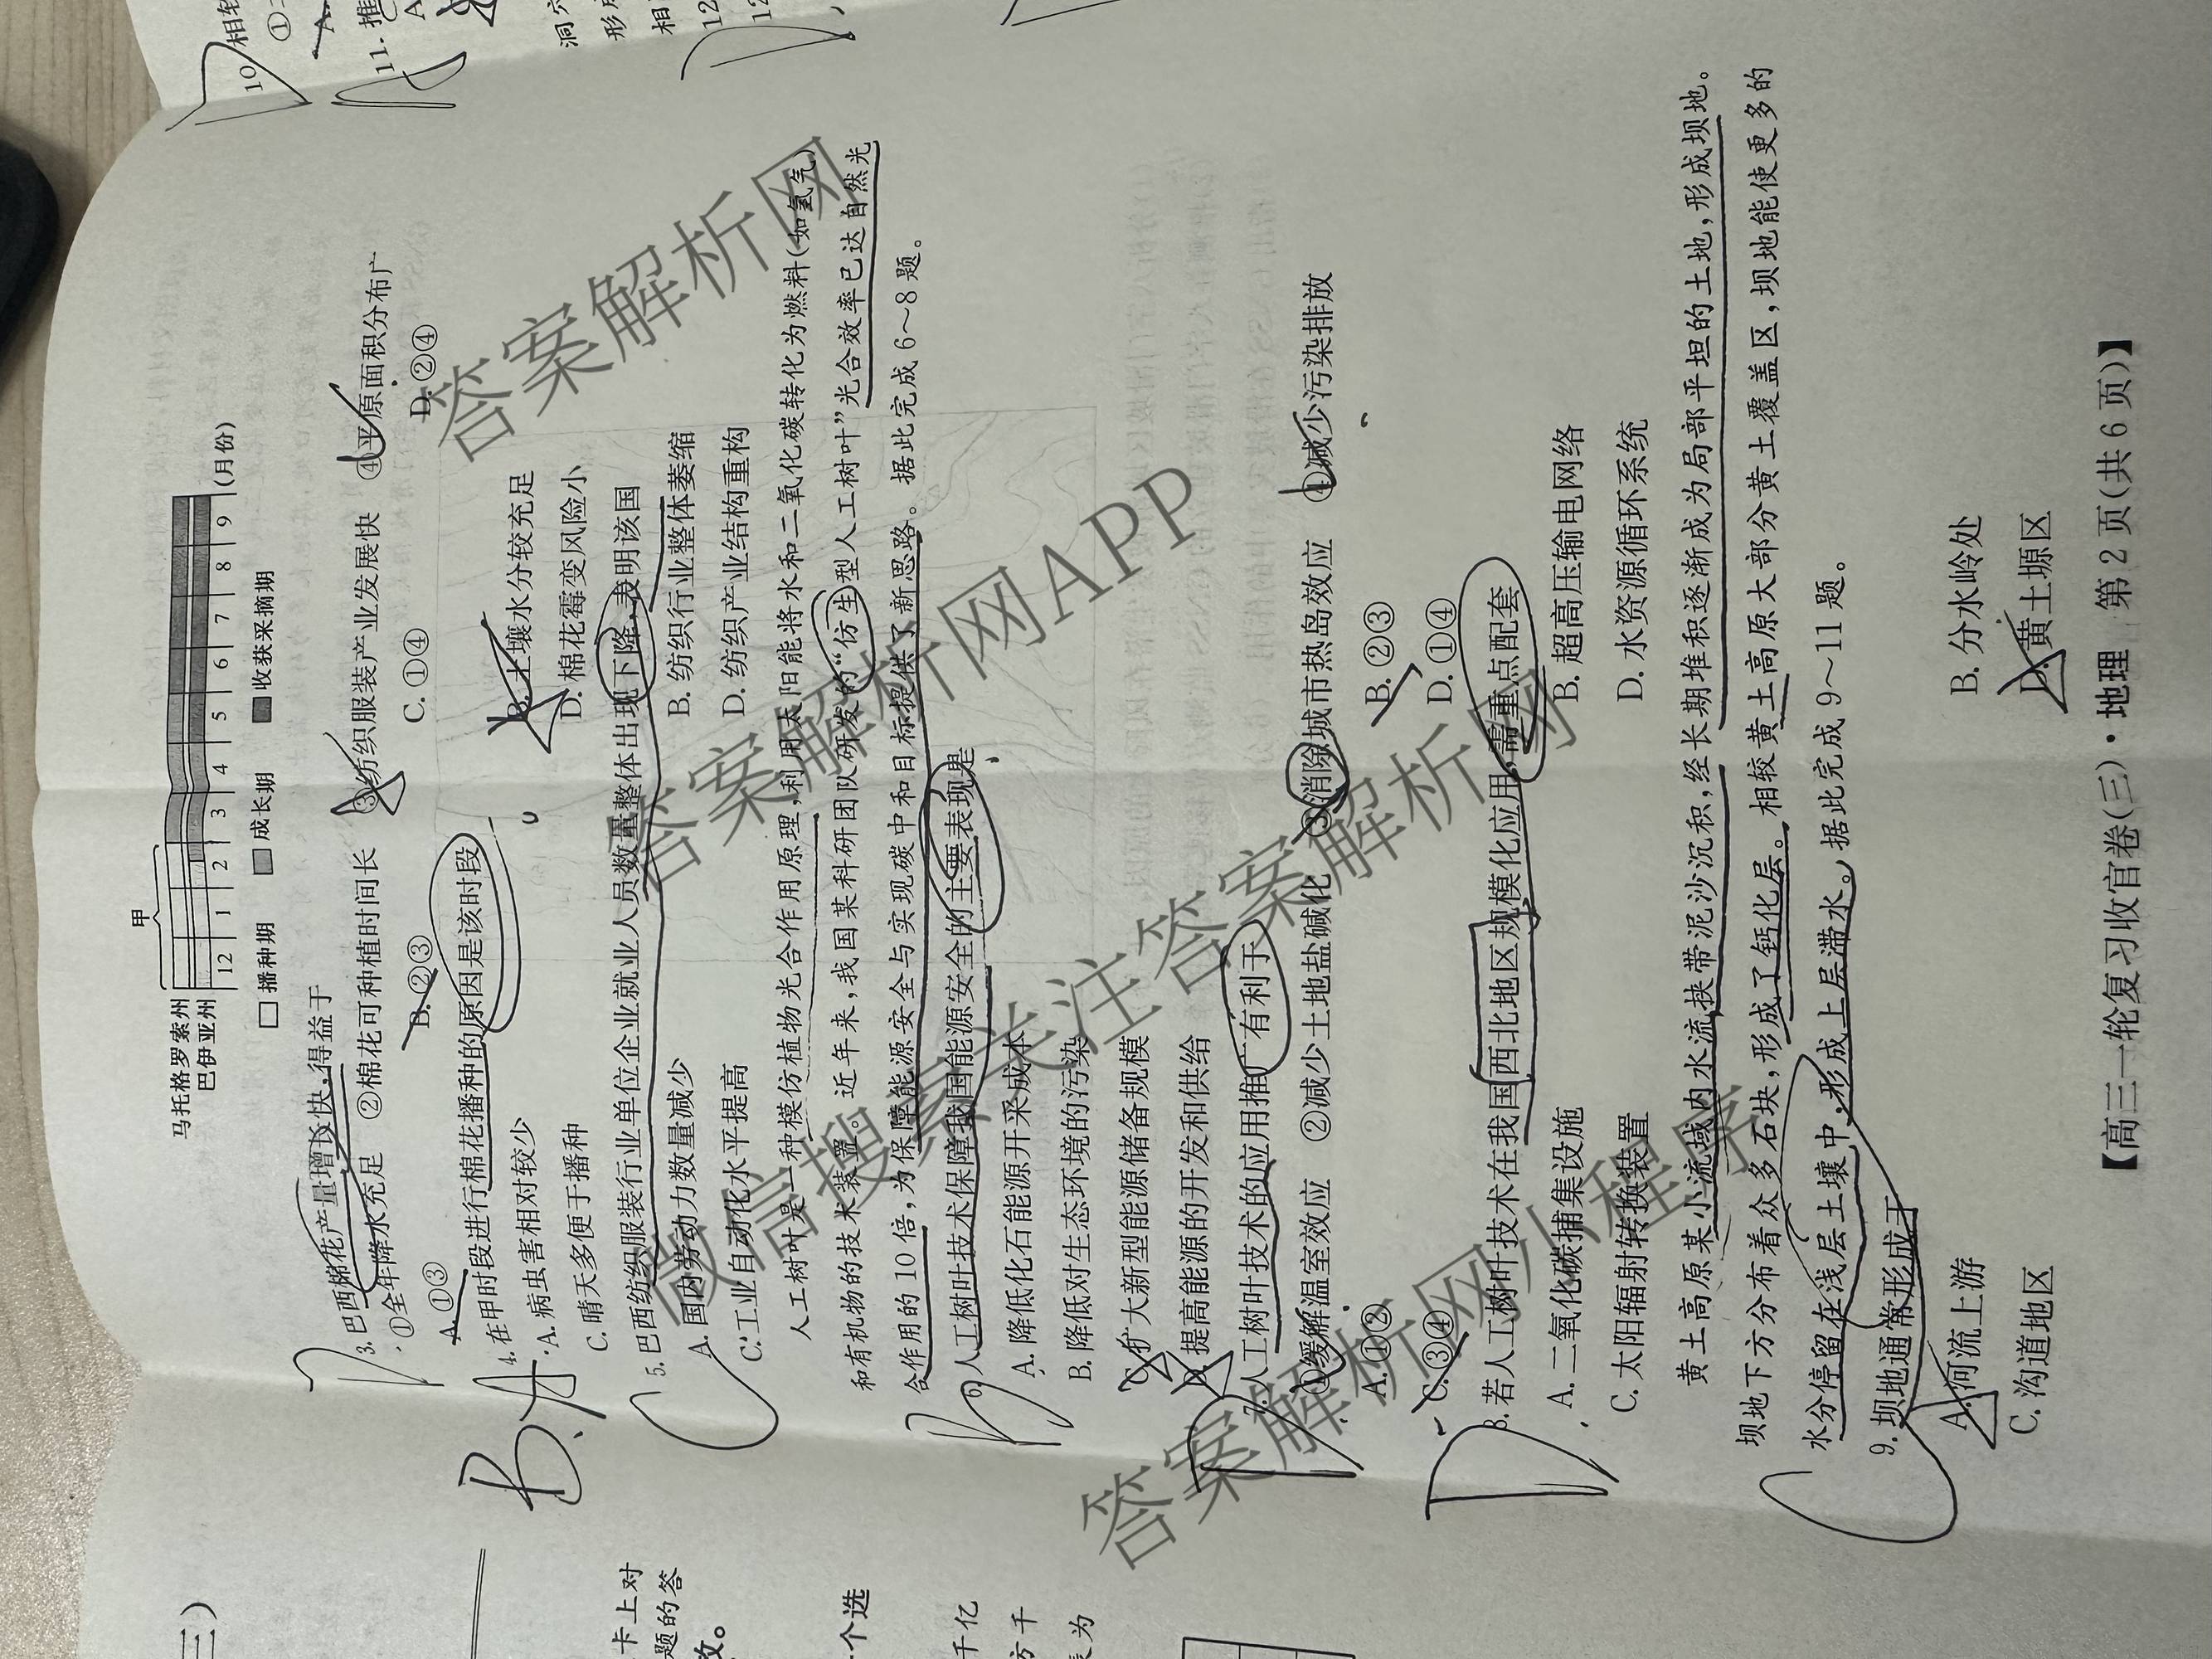 甲
马托格罗索州
巴伊亚州
12 1 2 3 4 5 6 7 8 9 (月份)
□播种期 ■成长期 ■收获采摘期
3.巴西棉花产量增长快,得益于
①全年降水充足 ②棉花可种植时间长 ③纺织服装产业发展快 ④平原面积分布广
A.①③ B.②③ C.①④ D.②④
4.在甲时段进行棉花播种的原因是该时段
A.病虫害相对较少 B.土壤水分较充足
C.晴天多便于播种 D.棉花霉变风险小
5.巴西纺织服装行业单位企业就业人员数量整体出现下降,表明该国
A.国内劳动力数量减少 B.纺织行业整体萎缩
C.工业自动化水平提高 D.纺织产业结构重构
人工树叶是一种模仿植物光合作用原理,利用太阳能将水和二氧化碳转化为燃料(如氢气)
和有机物的技术装置。近年来,我国某科研团队研发的“仿生型人工树叶”光合效率已达自然光
合作用的10倍,为保障能源安全与实现碳中和目标提供了新思路。据此完成6~8题。
6.人工树叶技术保障我国能源安全的主要表现是
A.降低化石能源开采成本
B.降低对生态环境的污染
C.扩大新型能源储备规模
D.提高能源的开发和供给
7.人工树叶技术的应用推广有利于
①缓解温室效应 ②减少土地盐碱化 ③消除城市热岛效应 ④减少污染排放
A.①② B.②③
C.③④ D.①④
8.若人工树叶技术在我国西北地区规模化应用,需重点配套
A.二氧化碳捕集设施 B.超高压输电网络
C.太阳辐射转换装置 D.水资源循环系统
黄土高原某小流域内水流挟带泥沙沉积,经长期堆积逐渐成为局部平坦的土地,形成坝地。
坝地下方分布着众多石块,形成了钙化层。相较黄土高原大部分黄土覆盖区,坝地能使更多的
水分停留在浅层土壤中,形成上层滞水。据此完成9~11题。
9.坝地通常形成于
A.河流上游 B.分水岭处
C.沟道地区 D.黄土塬区
【高三一轮复习收官卷(三)·地理 第2页(共6页)】
D
B.A
C
D
D
D
C
三)
卡上对
题的答
效。
一个选
千亿
方千
为
10
相较
①
A
11.推
A
洞穴
形成
相
12
12
答案解析网
答案解析网APP
微信搜索关注答案解析网
答案解析网小程序